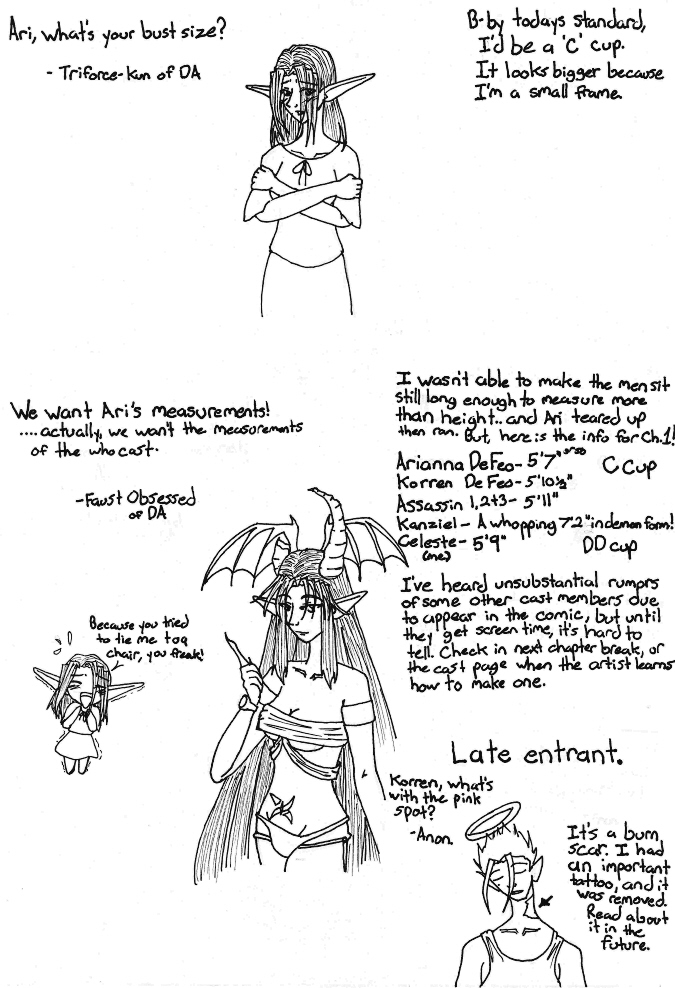 Ari, what's your bust size?
- Triforce-Kun of DA
B-by todays standard,
I'd be a 'C' cup.
It looks bigger because
I'm a small frame.
We want Ari's measurements!
....actually, we want the measurements
of the who cast.
-Faust Obsessed
of DA
I wasn't able to make the men sit
still long enough to measure more
than height.. and Ari teared up
then ran. But, here is the info for Ch.1!
Arianna DeFeo- 5'7" C Cup
Korren DeFeo- 5'10½"
Assassin 1,2+3- 5'11"
Kanziel- A whopping 7'2" in demon form!
Celeste- 5'9" DD cup
(me)
I've heard unsubstantial rumors
of some other cast members due
to appear in the comic, but until
they get screen time, it's hard to
tell. Check in next chapter break, or
the cast page when the artist learns
how to make one.
Because you tried
to tie me to a
chair, you freak!
Late entrant.
Korren, what's
with the pink
spot?
-Anon.
It's a burn
scar. I had
an important
tattoo, and it
was removed.
Read about
it in the
future.